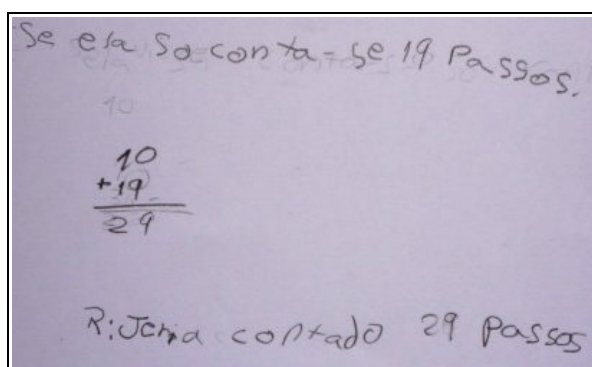 Se ela so conta-se 19 Passos.
10
10
+19
29
R: Teria contado 29 passos